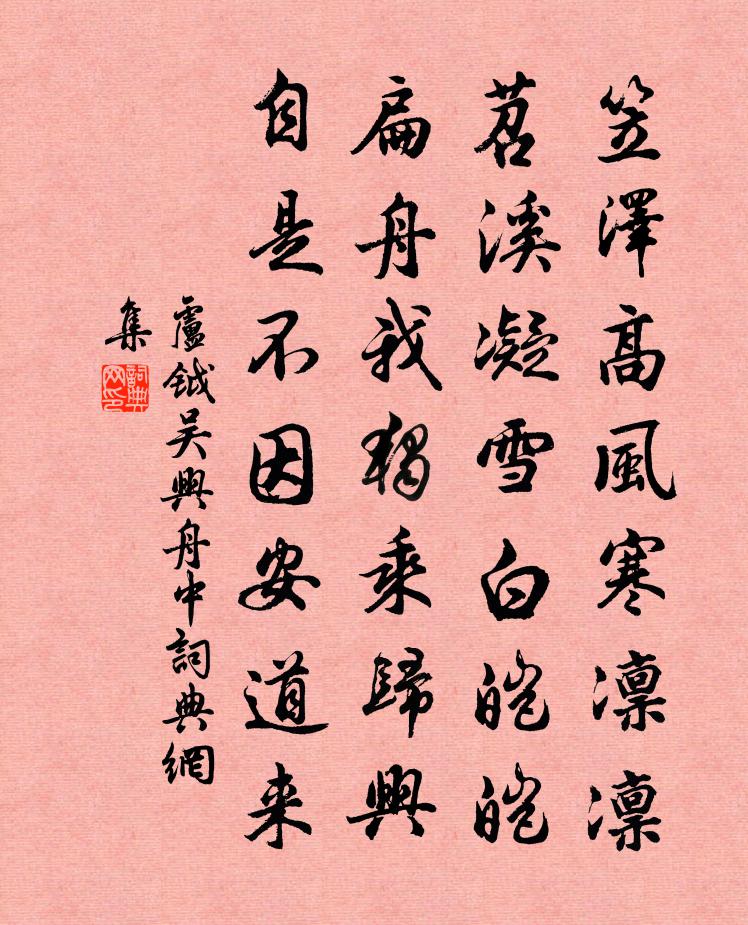 笠澤高風寒凛凛
苕溪凝雪白皚皚
扁舟我獨乘歸興
自是不因安道来
盧鉞吴興舟中詞典網
集
詞典
网印